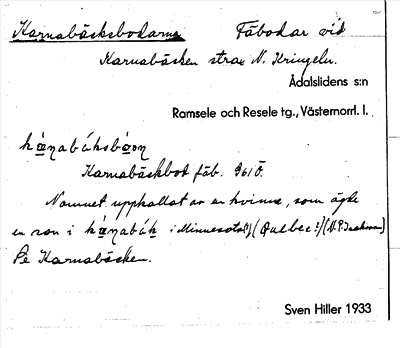 Karnabäcksbodarna Fäbodar vid
Karnabäcken strax N. Kringeln.
Ådalslidens s:n
Ramsele och Resele tg., Västernorrl. l.
Karnabäckbot fäb. 961 Ö.
Namnet upphallat av en kvinna, som ägde
en son i i Minnesota(?) (Quebec?)
Pe Karnabäcken.
Sven Hiller 1933